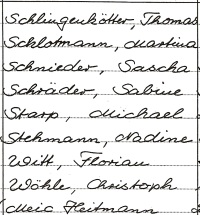 Schlingenkötter, Thomas
Schlotmann, Martina
Schnieder, Sascha
Schräder, Sabine
Starp, Michael
Stehmann, Nadine
Witt, Florian
Wöhle, Christoph
Heitmann